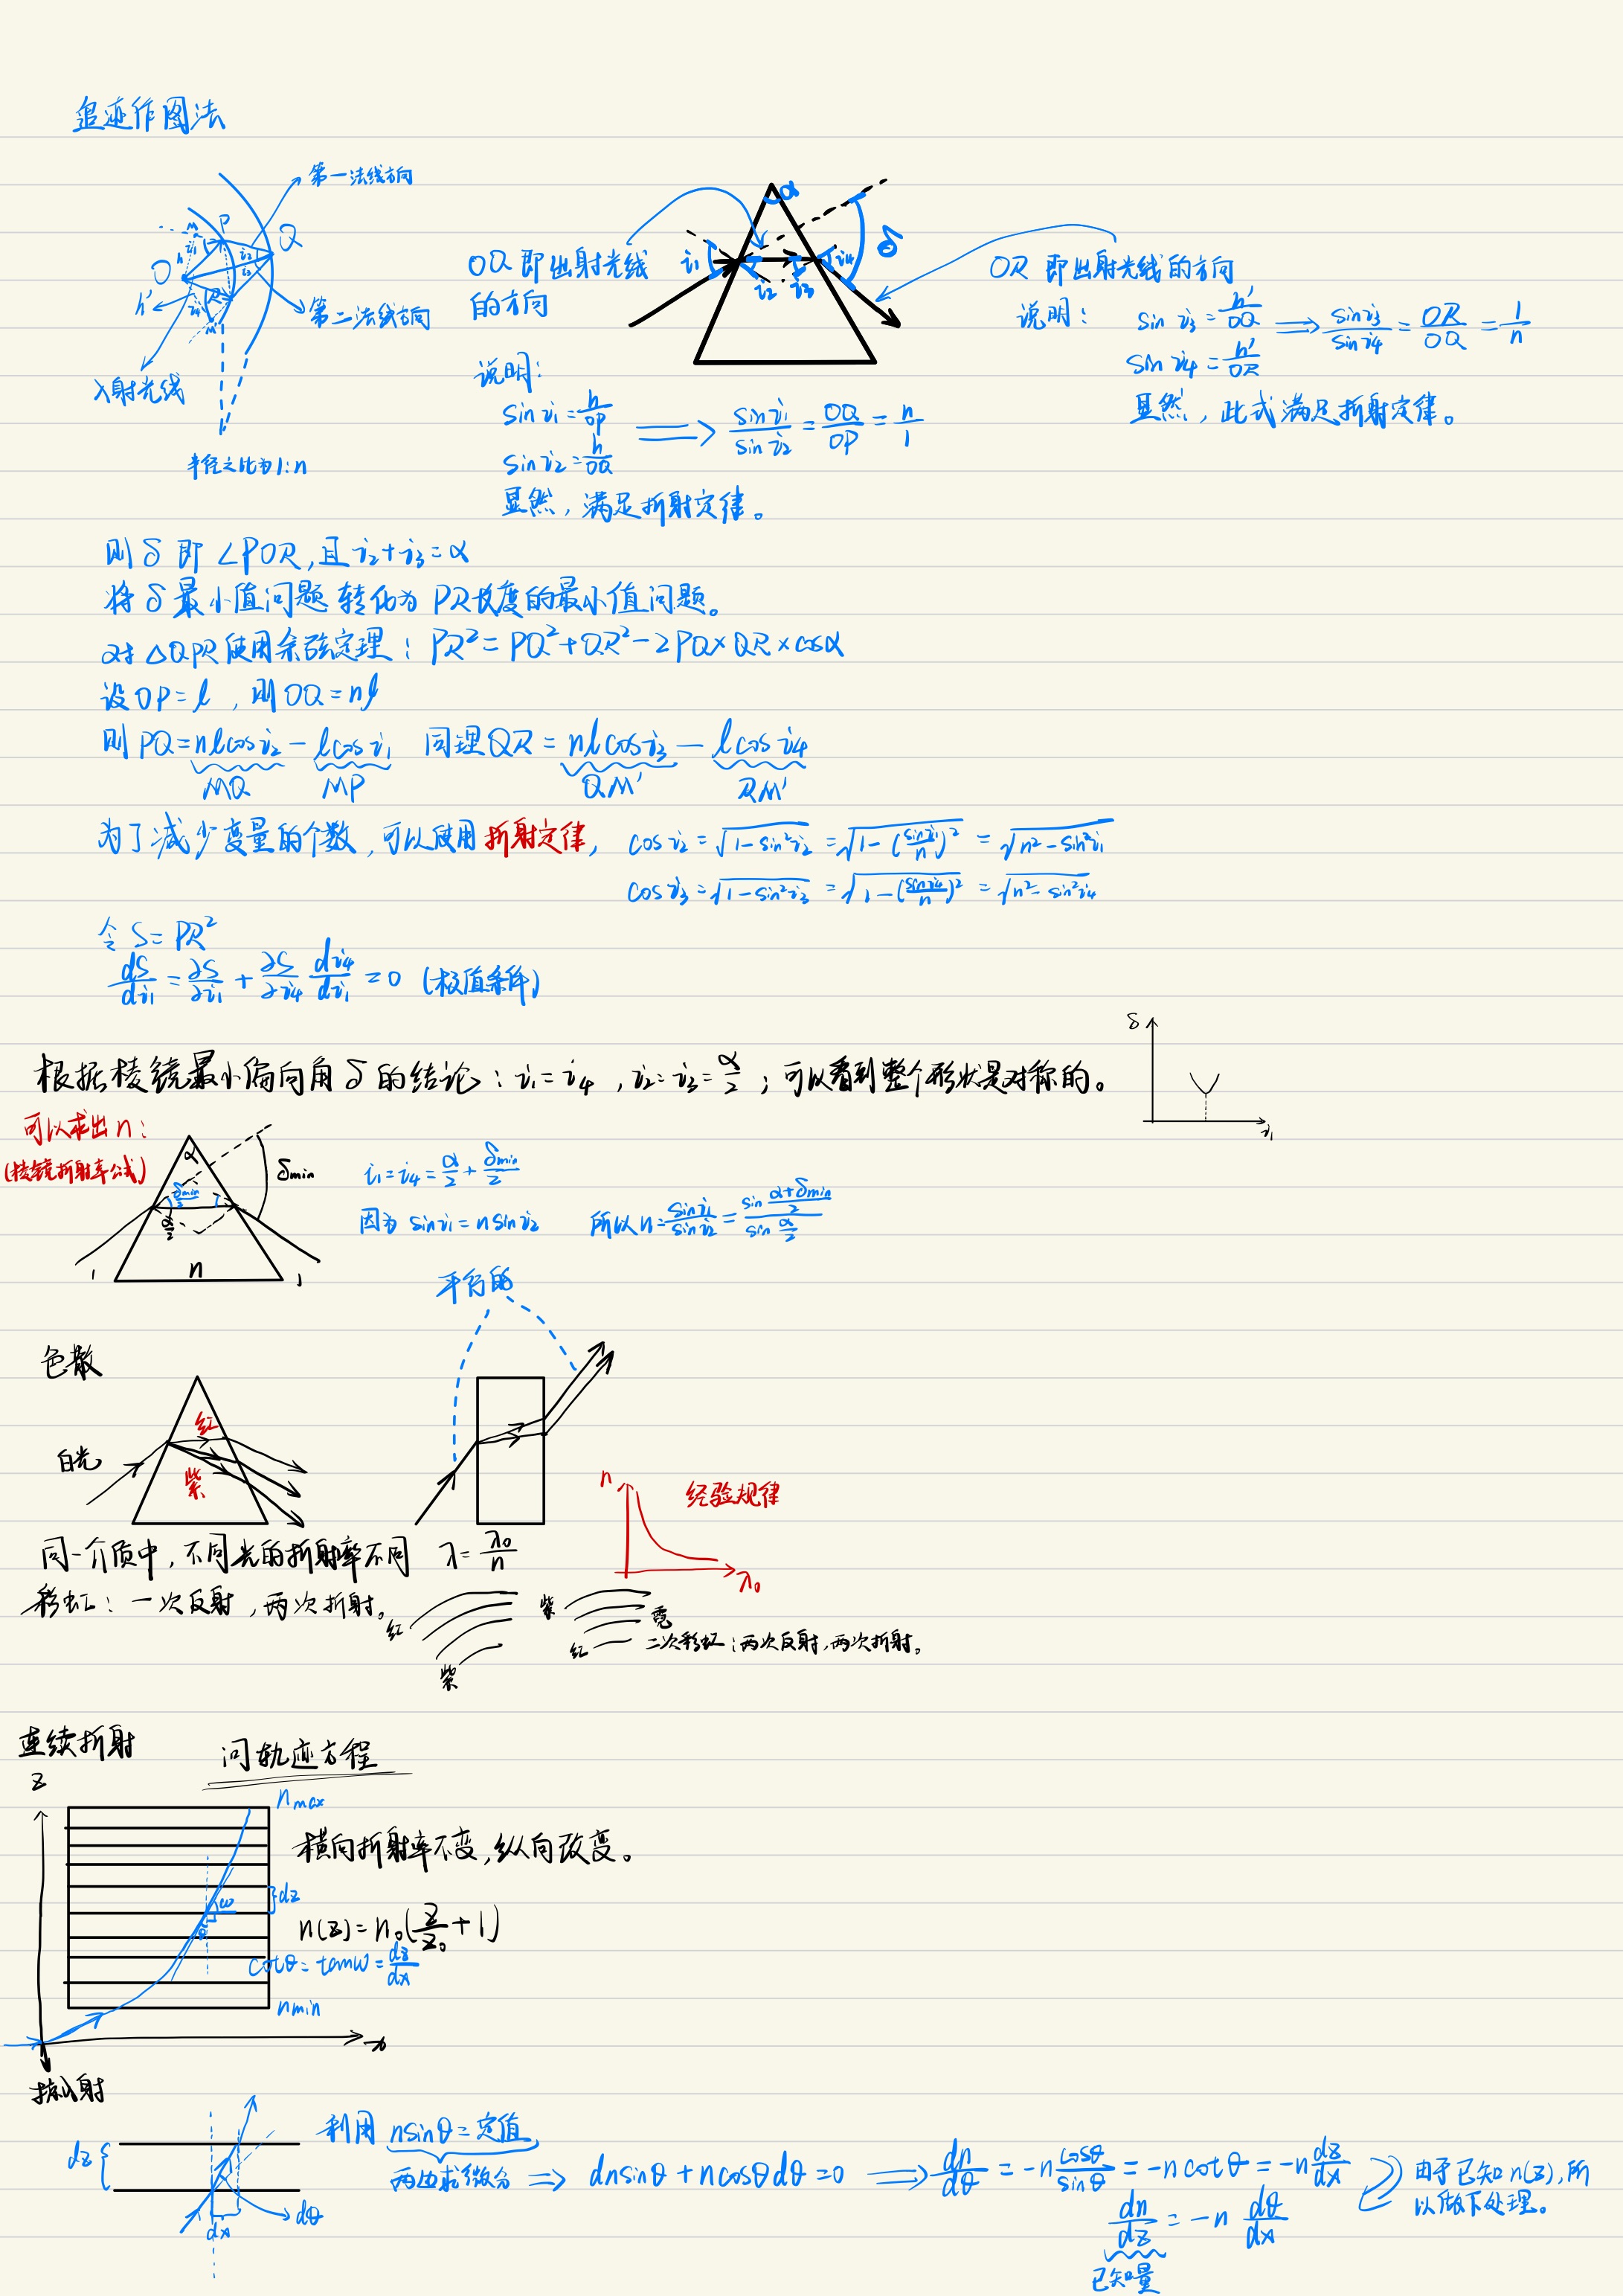 追迹作图法
第一法线方向
P
Q
O
R
M
M'
h
h'
i₁
i₂
i₃
i₄
第二法线方向
入射光线
半径之比为1:n
OQ 即出射光线
的方向
α
δ
i₁
i₂
i₃
i₄
说明:
sin i₁ = h/OP
sin i₂ = h/OQ
⟹ sin i₁/sin i₂ = OQ/OP = n/1
显然, 满足折射定律。
OR 即出射光线的方向
说明:
sin i₃ = h'/OQ ⟹ sin i₃/sin i₄ = OR/OQ = 1/n
sin i₄ = h'/OR
显然, 此式满足折射定律。
则 δ 即 ∠POR, 且 i₂+i₃=α
将 δ 最小值问题 转化为 PR长度的最小值问题。
对 △QPR 使用余弦定理: PR² = PQ² + QR² - 2PQ×QR×cosα
设 OP = l , 则 OQ = nl
则 PQ = nlcos i₂ - lcos i₁ 同理 QR = nlcos i₃ - lcos i₄
MQ MP QM' RM'
为了减少变量的个数, 可以使用折射定律, cos i₂ = √(1-sin²i₂) = √(1-(sin i₁/n)²) = √(n²-sin²i₁)
cos i₃ = √(1-sin²i₃) = √(1-(sin i₄/n)²) = √(n²-sin²i₄)
令 S = PR²
dS/di₁ = ∂S/∂i₁ + ∂S/∂i₄ di₄/di₁ = 0 (极值条件)
根据棱镜最小偏向角 δ 的结论: i₁ = i₄ , i₂ = i₃ = α/2 ; 可以看到整个形状是对称的。
δ
i₁
可以求出 n:
(棱镜折射率公式)
α
δmin
δmin/2
α/2
n
1
1
i₁ = i₄ = α/2 + δmin/2
因为 sin i₁ = n sin i₂ 所以 n = sin i₁/sin i₂ = sin((α+δmin)/2)/sin(α/2)
平行的
色散
白光
红
紫
n
经验规律
λ₀
同一介质中, 不同光的折射率不同 λ = λ₀/n
彩虹: 一次反射, 两次折射。
红
紫
紫
红
霓
二次彩虹: 两次反射, 两次折射。
连续折射 问轨迹方程
z
nmax
横向折射率不变, 纵向改变。
}dz
ω
θ
n(z) = n₀(z/z₀ + 1)
cotθ = tanω = dz/dx
nmin
x
掠入射
dz{
dx
dθ
利用 nsinθ = 定值
两边求微分 ⟹ dnsinθ + ncosθdθ = 0 ⟹ dn/dθ = -n cosθ/sinθ = -n cotθ = -n dz/dx
由于已知 n(z), 所
以做下处理。
dn/dz = -n dθ/dx
已知量